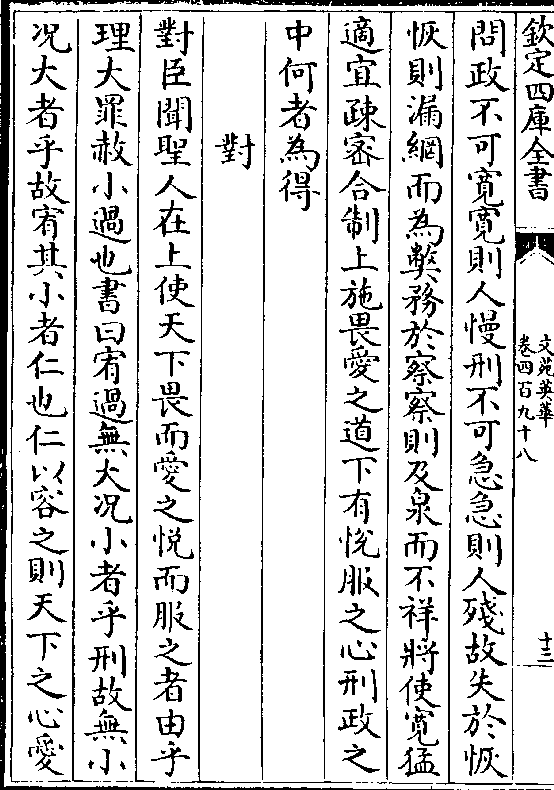 欽定四庫全書
文苑英華
卷四百九十八
十三
問政不可寛寛則人慢刑不可急急則人殘故失於恢
恢則漏網而為弊務於察察則及泉而不祥將使寛猛
適宜疎宻合制上施畏愛之道下有悦服之心刑政之
中何者為得
對
對臣聞聖人在上使天下畏而愛之悦而服之者由乎
理大罪赦小過也書曰宥過無大况小者乎刑故無小
况大者乎故宥其小者仁也仁以容之則天下之心愛